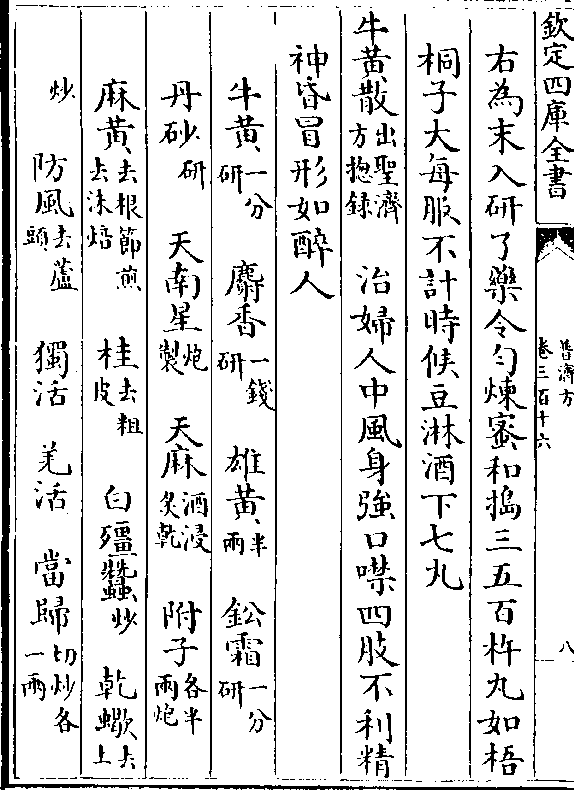 欽定四庫全書
普濟方
卷三百十六
八
右為末入研了藥令勻煉蜜和搗三五百杵丸如梧
桐子大每服不計時候豆淋酒下七丸
牛黃散出聖濟方揔錄 治婦人中風身強口噤四肢不利精
神昏冒形如醉人
牛黃一分研 麝香一錢研 雄黃半兩 鈆霜一分研
丹砂研 天南星炮製 天麻酒浸炙乾 附子各半兩炮
麻黃去根節煎去沫焙 桂去粗皮 白殭蠶炒 乾蠍去土
炒 防風去蘆頭 獨活 羌活 當歸切炒各一兩